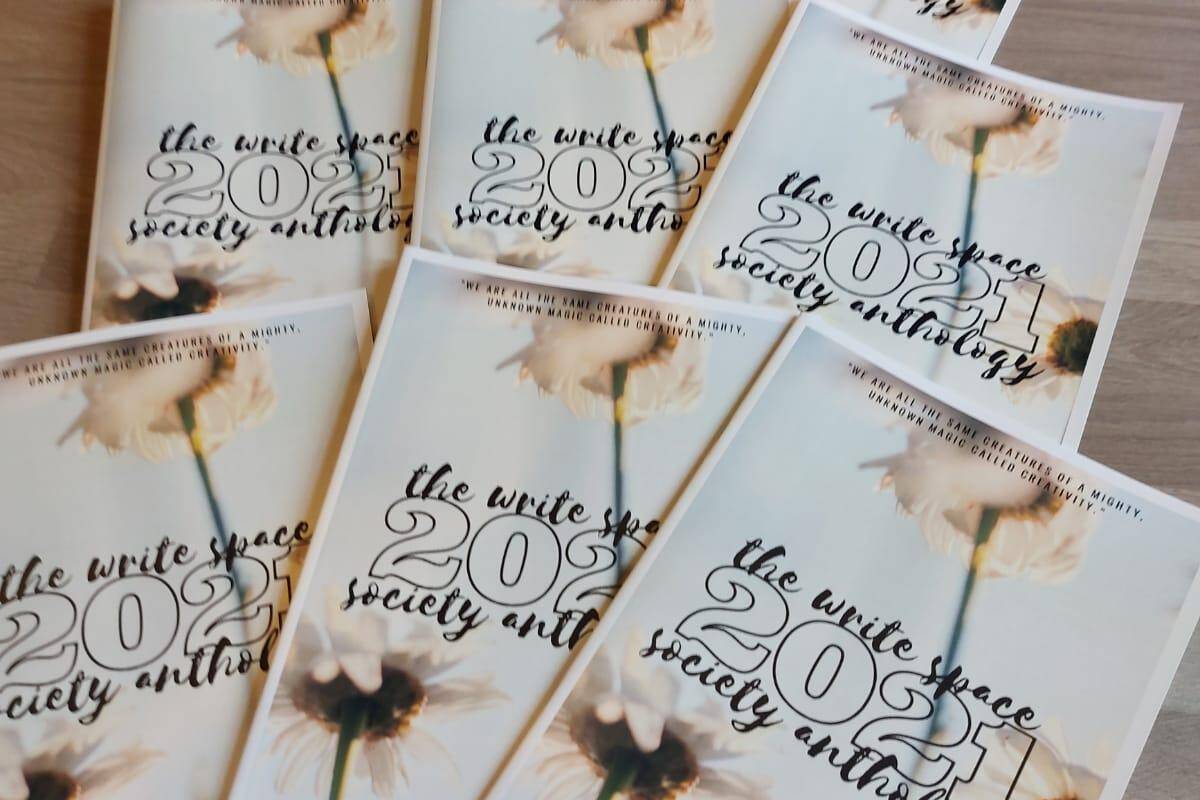 the write space
2021
society antholog
the write space
2021
society antholo
"WE ARE ALL THE SAME CREATURES OF A MIGHTY,
UNKNOWN MAGIC CALLED CREATIVITY."
the write space
2021
society anthology
WE ARE ALL THE SAME CREATURES OF A MIGHTY,
UNKNOWN MAGIC CALLED CREATIVITY."
the write space
2021
ociety anthol
"WE ARE ALL THE SAME CREATURES OF A MIGHTY,
UNKNOWN MAGIC CALLED CREATIVITY."
the write spa
202
society anth
"WE ARE ALL THE SAME CREATURES OF A MIGHTY,
UNKNOWN MAGIC CALLED CREATIVITY."
the write space
2021
society antholo